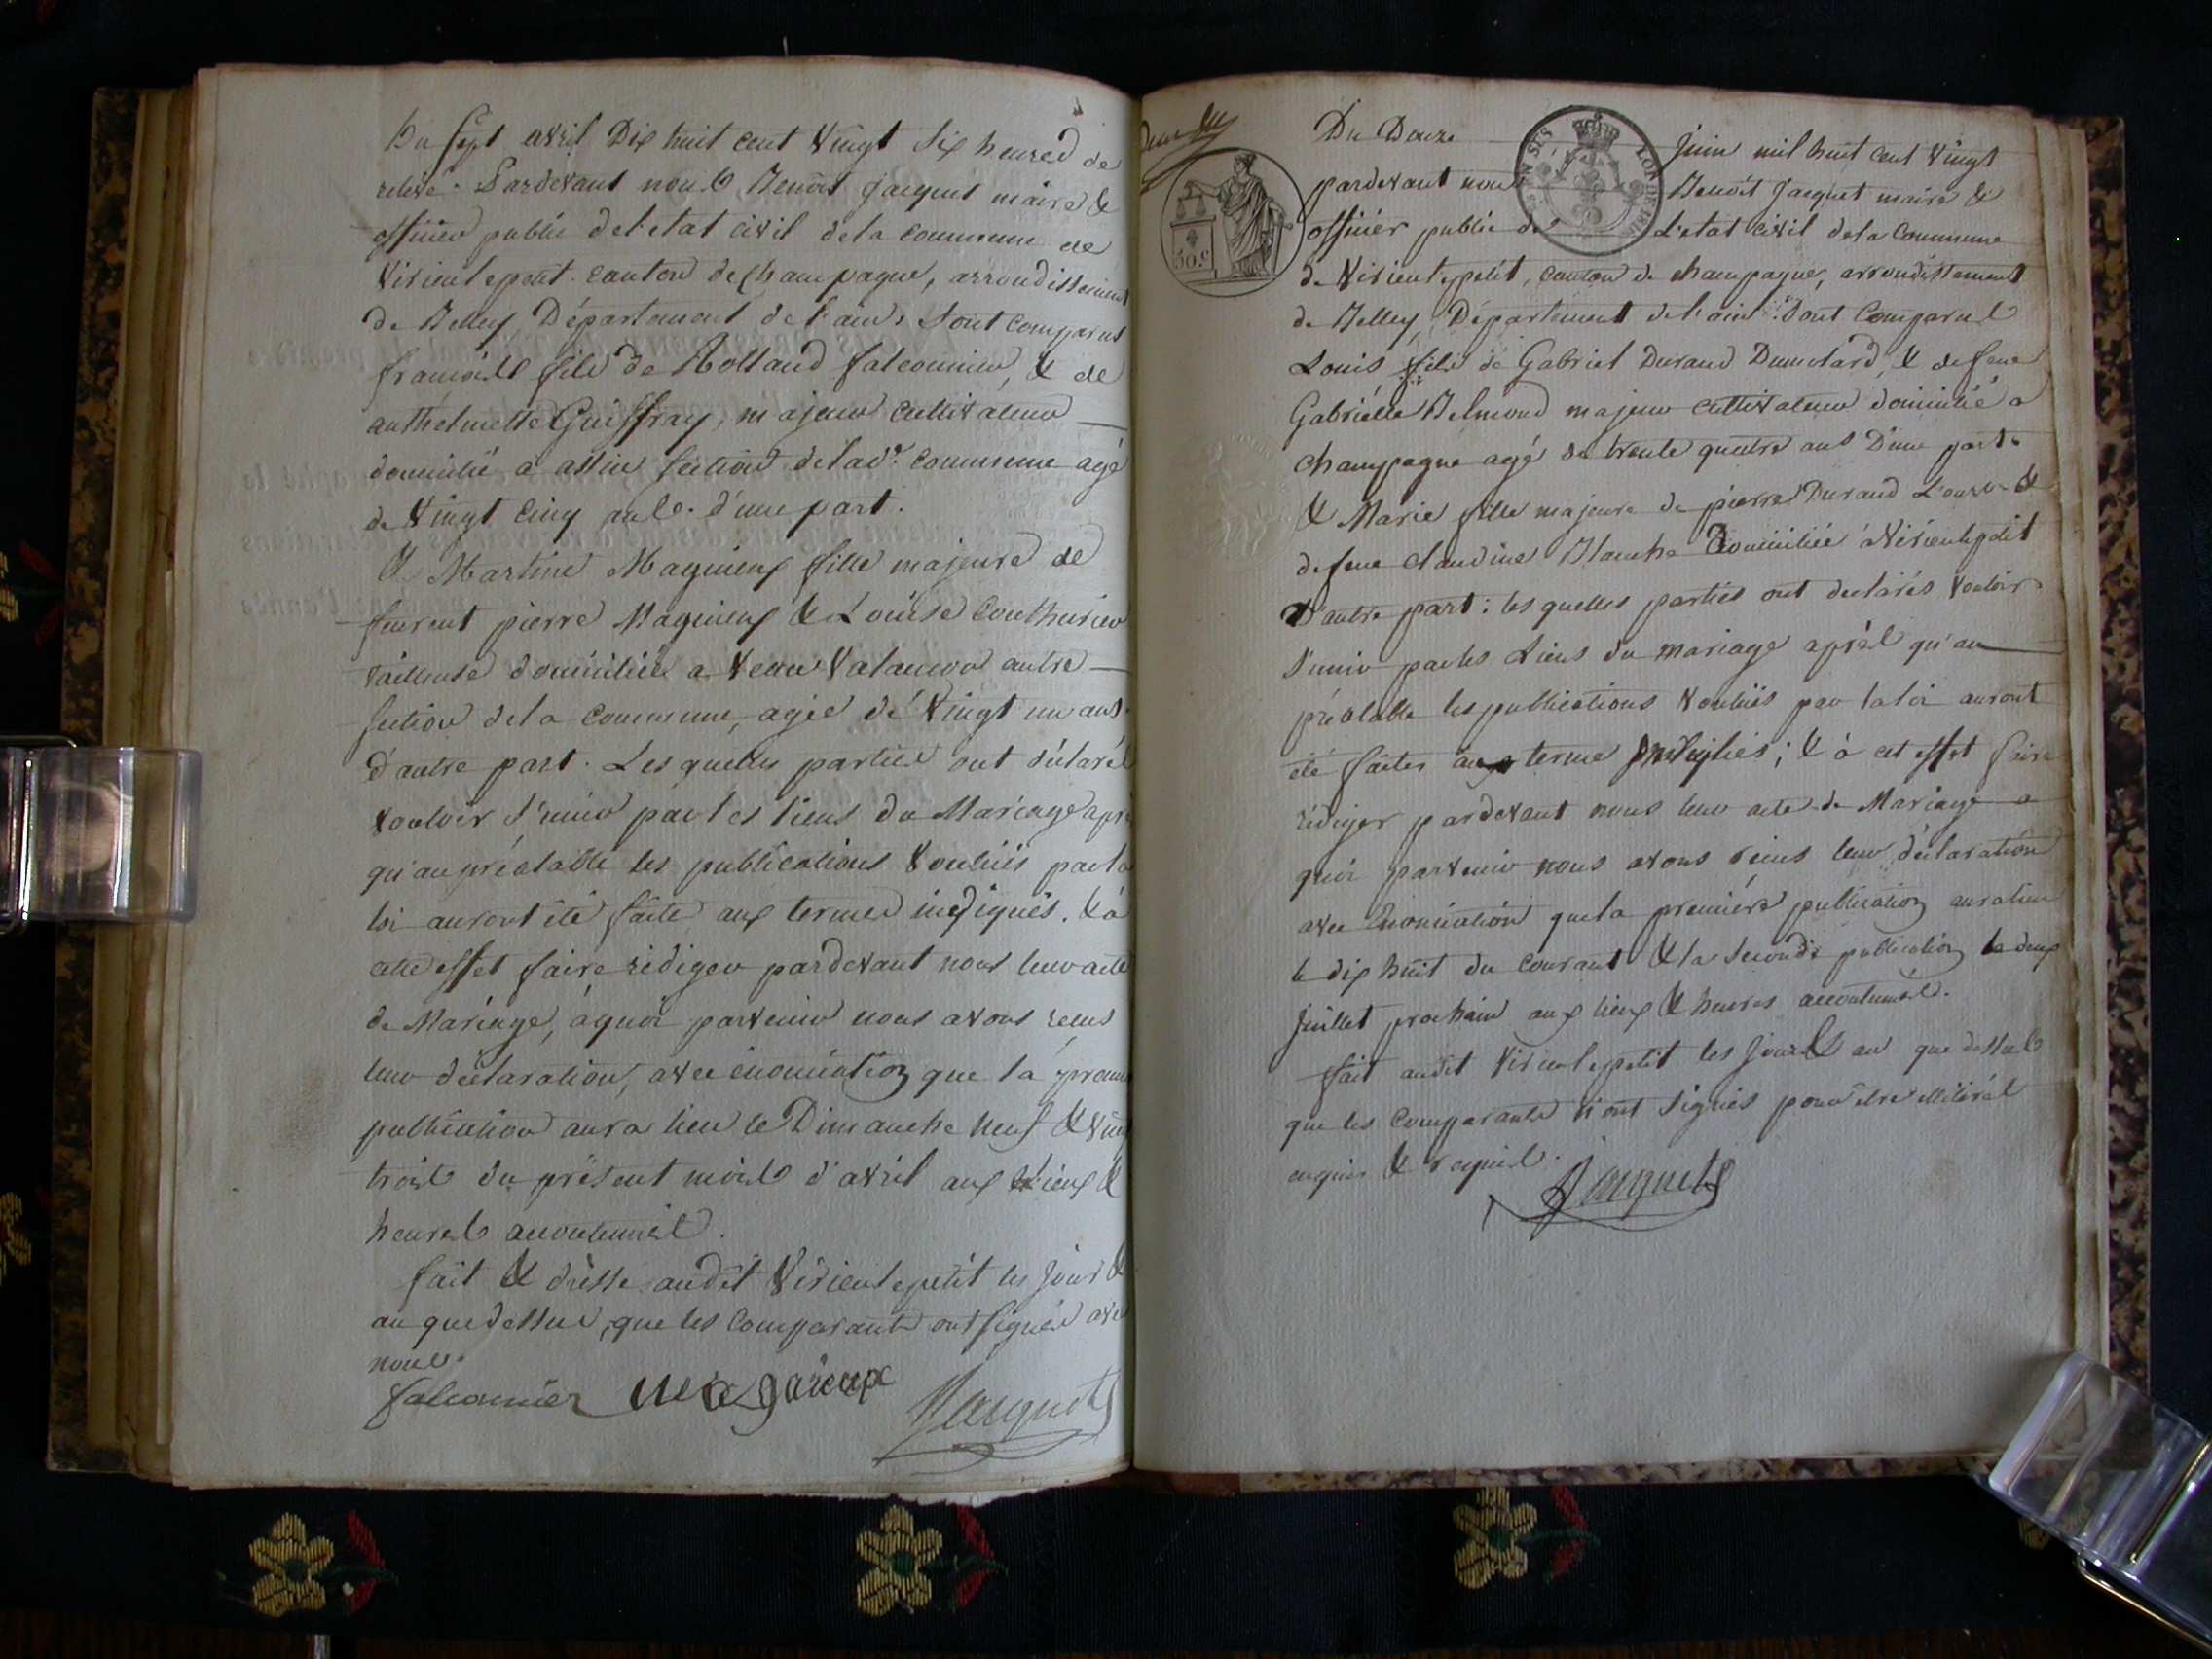 Du sept avril Dix huit cent Vingt Six heures de
relevé. Pardevant nous Benoit Jacquet maire &
officier public de l'etat civil de la commune de
Virieu le petit. canton de Champagne, arrondissement
de Belley Département de l'ain, sont comparus
françois fils de Rolland falconnier, & de
anthelmette Guiffray, majeur cultivateur
domicilié a assin section de lade. commune agé
de Vingt cinq ans. d'une part.
& Martine Magnieux fille majeure de
feurent pierre Magnieux & Louise Couthurier
tailleuse domiciliée a autre
section de la commune, agée de Vingt un ans
d'autre part. Les quelles parties ont déclarés
vouloir s'unir par les liens du Mariage apré
qu'au préalable les publications voulues par la
loi auront été faite aux termes indiqués. & à
cette effet faire rédiger pardevant nous leur acte
de Mariage, à quoi parvenir nous avons reçus
leur déclaration, avec énonciation que la premie
publication aura lieu le Dimanche neuf & ving
trois du présent mois d'avril aux lieux &
heures accoutumés.
fait & dressé audit Virieu le petit les jour &
an que dessus, que les comparants ont signés avec
nous.
falconnier magnieux Jacquet
30.c
Du Douze juin mil huit cent Vingt
pardevant nous Benoit Jacquet maire &
officier public de L'etat civil de la Commune
de Virieu le petit, canton de champagne, arrondissement
de Belley, Département de l'ain: sont Comparus
Louis fils de Gabriel Durand Dumolard, & de feue
Gabriélle Belmond majeur cultivateur domicilié a
Champagne agé de trente quatre ans D'une part.
& Marie fille majeure de pierre Durand &
de feue Claudine Blanche Domiciliée à Virieu le petit
D'autre part: les quelles parties ont déclarés vouloir
s'unir par les Liens du mariage après qu'au
préalable les publications voulues par la loi auront
été faites aux terme ; & à cet effet faire
rédiger pardevant nous leur acte de Mariage a
quoi parvenir nous avons reçus leur déclaration
avec Enonciation que la premiére publication aura lieu
le dix huit du courant & la seconde publication le deux
juillet prochain aux lieux & heures accoutumés.
fait audit Virieu le petit les jour & an que dessus
que les comparants n'ont signés pour être illitérés
enquis & requis.
Jacquet